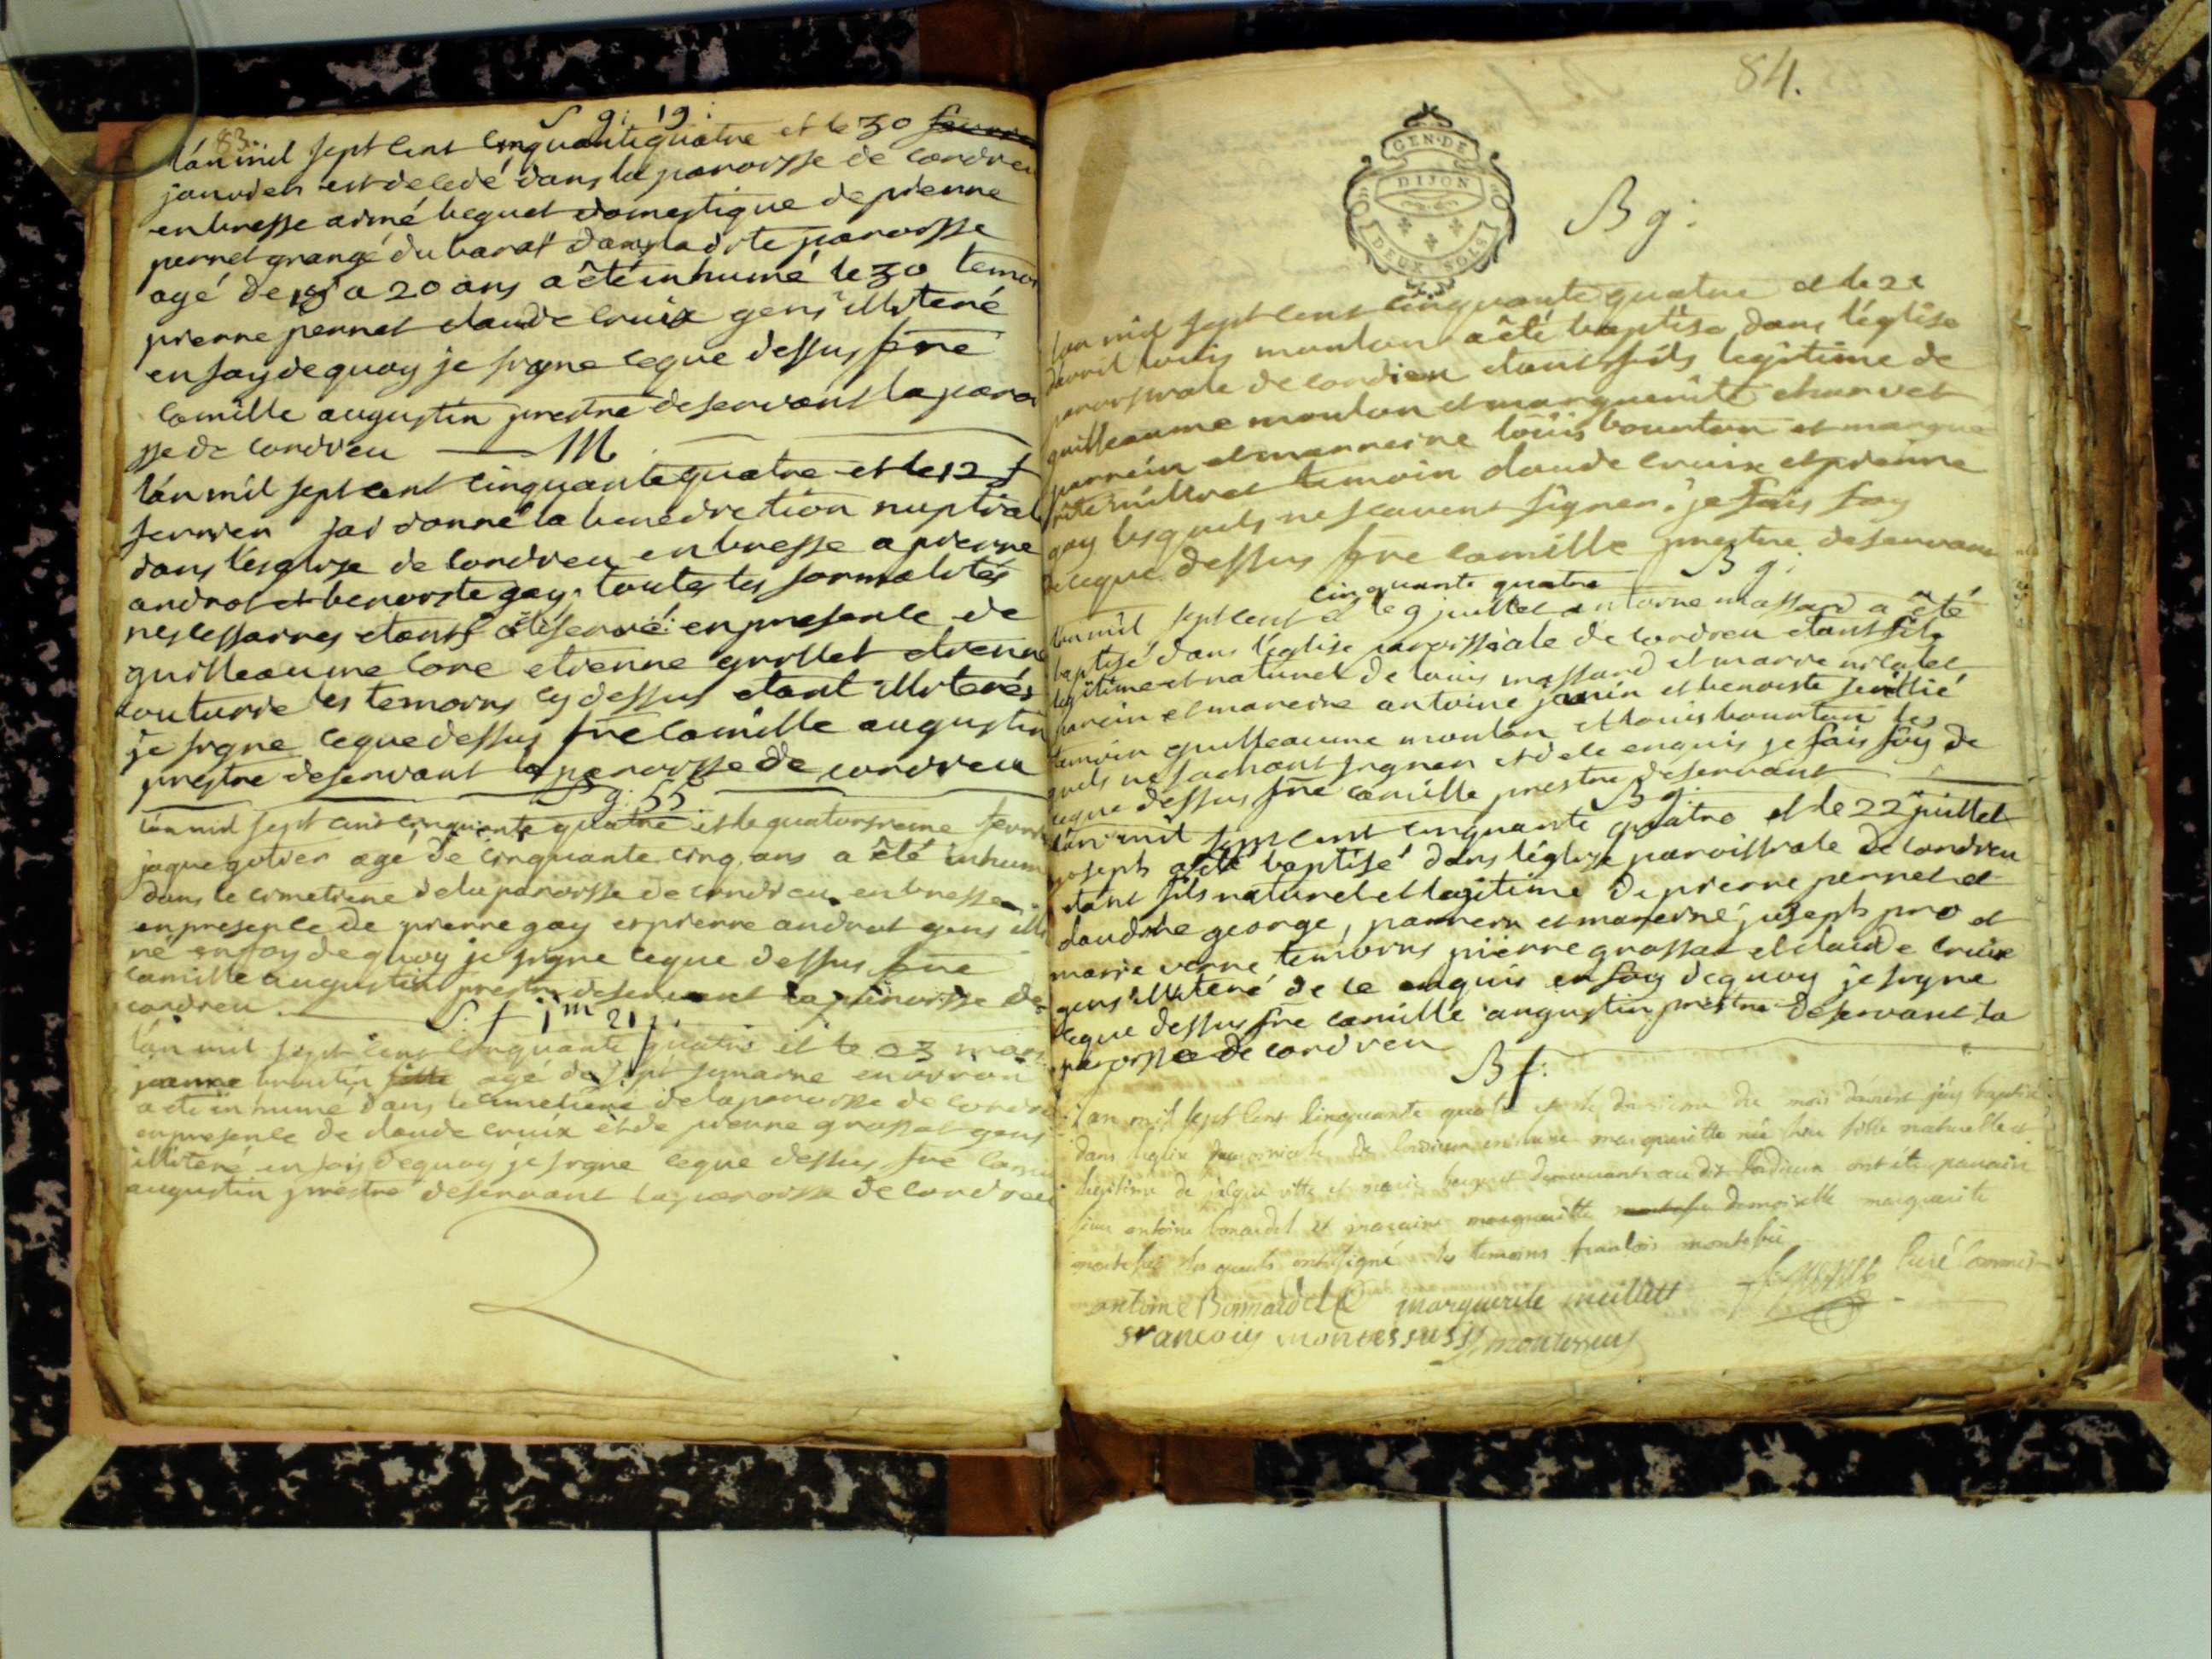 83.
S g: 19:
lán mil sept cent cinquante quatre et le 30
janvier est decedé dans la paroisse de cordieu
en bresse aimé beguet domestique de pierre
pernet grangé du barat dans la dite paroisse
agé de 18 a 20 ans a êté inhumé le 30 temoi
pierre pernet claude cruix gens illiteré
en foy de quoy je signe ceque dessus fre
Camille augustin prestre deservant la paroi
sse de Cordieu M
lán mil sept cent cinquante quatre et le 12 f
fevrier jai donné la benediction nuptial
dans l'esglise de Cordieu en bresse a pierre
androt et benoiste gay. toutes les formalités
nescessaires etant observé en presence de
guilleaume Core etienne grillet etienne
couturie les temoins cy dessus etant illiterés
je signe ceque dessus fre Camille augustin
prestre deservant la paroisse de cordieu
S g: 55
lán mil sept cent cinquante quatre et le quatorsieme fevri
jaque gotier agé de cinquante cinq ans a êté inhum
dans le cimetiere de la paroisse de cordieu en bresse
en presence de pierre gay et pierre androt gens illi
ré en foy de quoy je signe ceque dessus fre
Camille augustin prestre deservant la paroisse de
cordieu
S. f 1m 21 j.
lán mil sept cent cinquante quatre et le 23 mars
jeanne agé de sept semaine environ
a eté inhumé dans le cimetiere de la paroisse de Cordi
en presence de claude cruix et de pierre grossat gens
illiteré en fois de quoy je signe ceque dessus fre Cami
augustin prestre deservant la paroisse de cordieu
84.
GEN. DE
DIJON
DEUX SOLS
B g:
lan mil sept cent cinquante quatre et le 21
davril louis monlon a êté baptisé dans l'église
paroissiale de Cordieu etant fils legitime de
guilleaume monlon et marguerite charvet
parrein et marreine loüis bourton et margue
rite temoin claude cruix et pierre
gay lesquels ne scavent signer. je fais foy
de ceque dessus fre Camille prestre deservant
B g:
cinquante quatre
lan mil sept cent et le 9 juillet antoine massard a êté
baptisé dans l'église paroissiale de Cordieu etant fils
legitime et naturel de louis massard et marie nicolet
parein et mareine antoine janin et benoiste
temoin guilleaume monlon et louis bourton les
quels ne sachant signer et de ce enquis je fais foy de
ceque dessus fre Camille prestre deservant
B g:
lán mil sept cent cinquante quatre et le 22 juillet
joseph a êté baptisé dans l'église paroissiale de Cordieu
etant fils naturel et legitime de pierre pernet et
claudine george, parrein et mareine joseph pro et
marie verne temoins pierre grossat et claude cruix
gens illiteré de ce enquis en foy de quoy je signe
ceque dessus fre Camille augustin prestre deservant la
paroisse de Cordieu
B f:
lan mil sept cent cinquante quatre et le du mois j'ay baptisé
dans leglise de Cordieu en bresse marguerite née fille naturelle et
legitime de et marie beguet demeurants au dit Cordieux ont été parrain
sieur antoine bonardel et maraine marguerite demoiselle marguerite
les quels ont signé les temoins francois
antoine Bonnardel marguerite
francois montessus montessus
Curé Commis